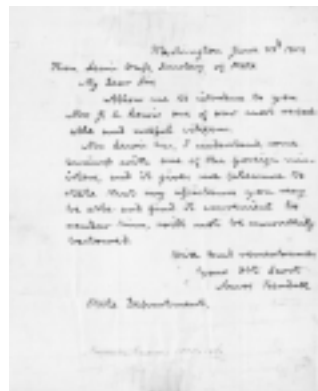 Washington June
Hon. Lewis Cass, Secretary of State
My Dear Sir
Allow me to introduce to you
Mr. J. E. Lewis one of our most
able and useful citizens.
Mr. Lewis has, I understand, some
business with one of the foreign
and it gives me pleasure to
state that any assistance you may
be able and find it convenient to
render him, will not be unworthily
bestowed.
With kind remembrances
Your Obt. Servt.
Amos Kendall
State Department.